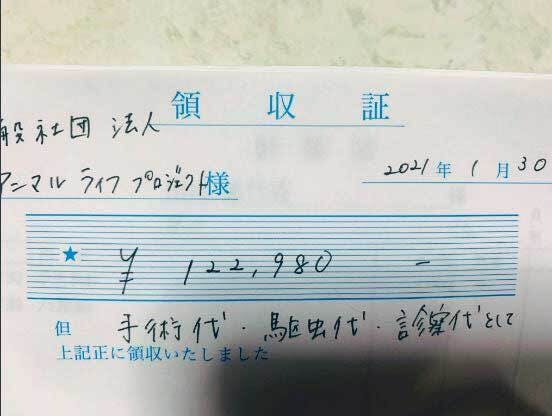 領収証
般社団法人
アニマルライフプロジェクト様
2021年1月30
★ ¥ 122,980 −
但 手術代・駆虫代・診察代として
上記正に領収いたしました